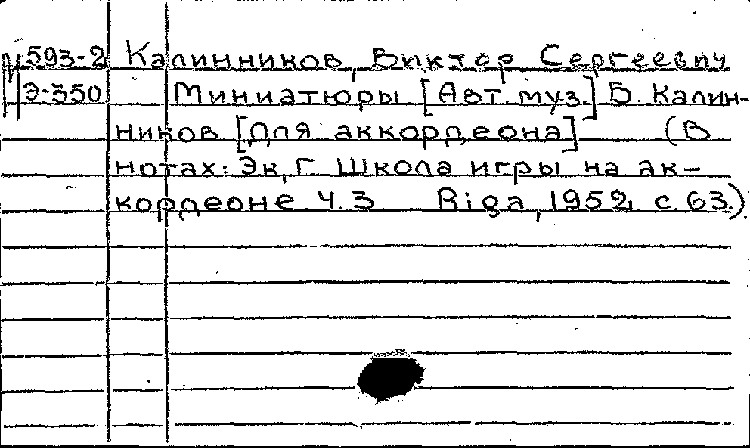 М 593-2 Калинников, Виктор Сергеевич
Э-350 Миниатюры [Авт. муз.] Б. Калин-
ников [Для аккордеона] (В
нотах: Эк, Г. Школа игры на ак-
кордеоне Ч. 3 Riga, 1952, с. 63.)